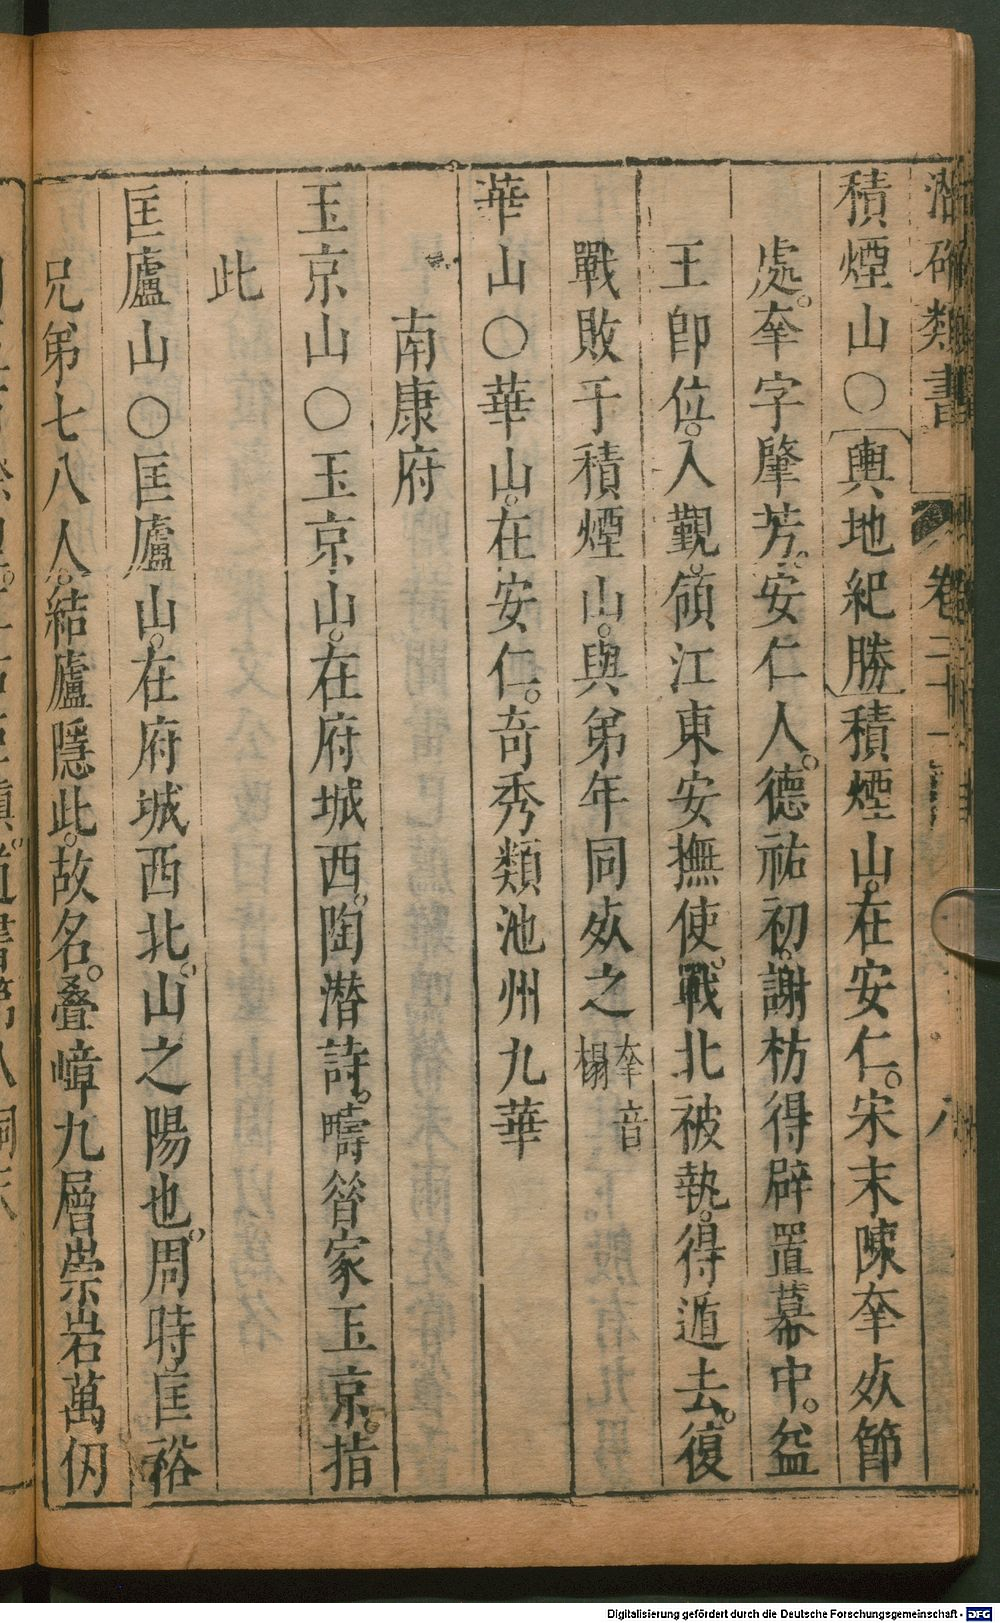 潛确類書
卷二十一
積煙山○輿地紀勝積煙山。在安仁。宋末陳牽死節
處。牽字肇芳。安仁人。德祐初。謝枋得辟置幕中。益
王卽位。入覲。領江東安撫使。戰北被執。得遁去。復
戰敗于積煙山。與弟年同死之牽音榻
華山○華山。在安仁。奇秀類池州九華
南康府
玉京山○玉京山。在府城西。陶潛詩。疇昔家玉京。指
此
匡廬山○匡廬山。在府城西北。山之陽也。周時匡裕
兄弟七八人。結廬隱此。故名。疊嶂九層崇岩萬仞
Digitalisierung gefördert durch die Deutsche Forschungsgemeinschaft - DFG